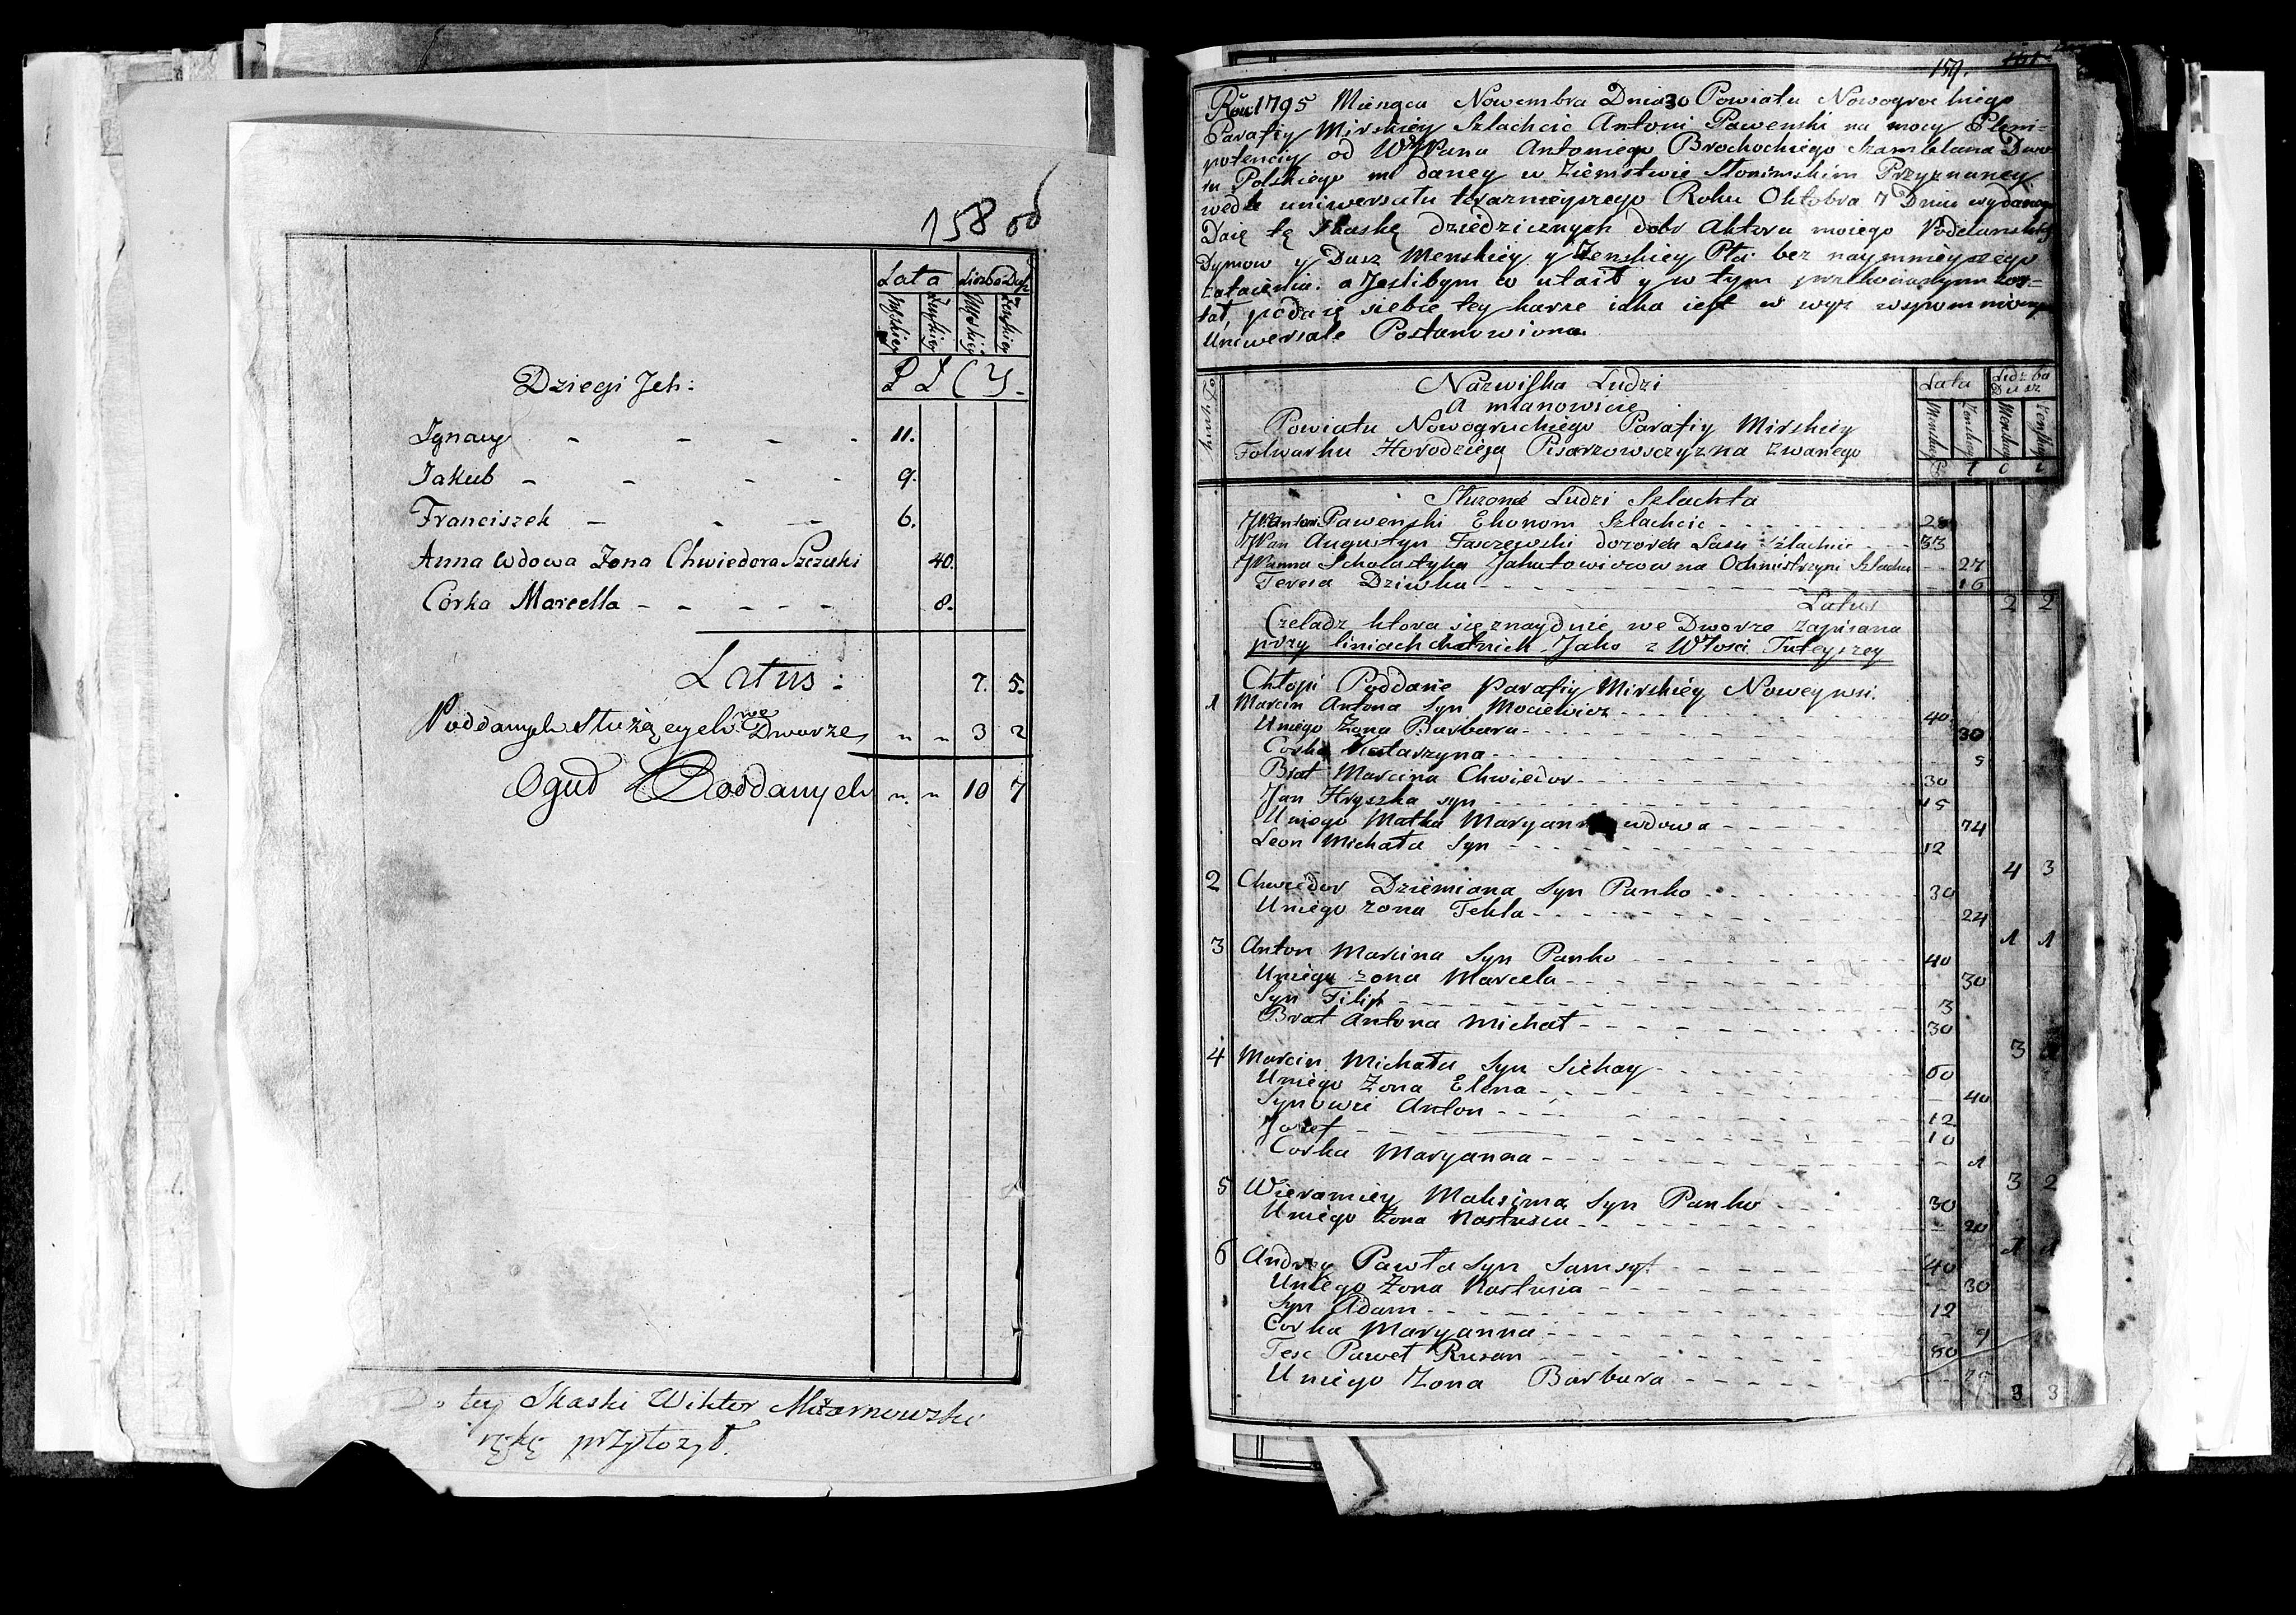 158 об
Lata Liczba Dusz
Męzkiey Żeńskiey Męzkiey Żeńskiey
Dzieci Jch:
Ignacy - - - - 11.
Jakub - - - - 9.
Franciszek - - - 6.
Anna Wdowa Żona Chwiedora Szczuki 40.
Corka Marcella - - - - - 8.
Latus: 7. 5.
Poddanych Służących we Dworze „ „ 3 2
Oguł Poddanych „ „ 10 7
Do tey Skaski Wiktor
rękę przyłożył.
159.
Roku 1795 Miesąca Nowembra Dnia 30 Powiatu Nowogrockiego
Parafiy Mirskiey Szlachcic Antoni Pawenski na mocy Pleni=
potenciy od WJPana Antoniego Brochockiego Szambelana Dwo
ru Polskiego mi daney w Ziemstwie Słonimskim Przyznaney
wedle uniwersału teraznieyszego Roku Oktobra 7 Dnia wydanego
Daię tę Skaskę dziedzicznych dobr Aktora moiego Poddanskich
Dymow y Dusz Menskiey y Zenskiey Płci bez naymnieyszego
zataienia. a Jeslibym co utaił y w tym
podaię siebie tey karze iaka iest w wyz wspomnionym
Uniwersale Postanowiona.
Nazwiska Ludzi
A mianowicie
Powiatu Nowogruckiego Parafiy Mirskiey
Folwarku Horodzieja Pisarzowsczyzna zwanego
Lata Liczba Dusz
Menskiey Zenskiey Menskiey Zenskiey
Służone Ludzi Szlachta
JPan Antoni Pawenski Ekonom Szlachcic - - -
JPan Augustyn Jaszczewski dozorca Lasu Szlachcic - - 33
JPanna Scholastyka Jakutowiczowna Ochmistrzyni Szlachci - - 27
Teresa Dziwka - - - 16
Latus 2 2
Czeladz ktora się znayduie we Dworze zapisana
przy liniach chatnich Jako z Włosci Tuteyszey
Chłopi Poddanie Parafiy Mirskiey Nowey wsi
1 Marcin Antona Syn Mociewicz - - - 40
Uniego Zona Barbara - - - 30
Corka Katarzyna - - - 5
Brat Marcina Chwiedor - - - 30
Jan Hryszka syn - - - 15
Uniego Matka Maryanna wdowa - - - 74
Leon Michała Syn - - - 12
4 3
2 Chwiedor Dziemiana Syn Panko - - - 30
Uniego zona Tekla - - - 24
1 1
3 Anton Marcina Syn Panko - - - 40
Uniego zona Marcela - - - 30
Syn Filip - - - 3
Brat Antona Michał - - - 30
3
4 Marcin Michała Syn Sichay - - - 60
Uniego Zona Elena - - - 40
Synowie Anton - - - 12
Jozef - - - 10
Corka Maryanna - - - 1
3 2
5 Wieramiey Maksima Syn Panko - - - 30
Uniego Zona Nastusia - - - 20
1 1
6 Andrey Pawła Syn - - - 40
Uniego Zona Nastusia - - - 30
Syn Adam - - - 12
Corka Maryanna - - - 9
Tesc Paweł Rusan - - - 80
Uniego Zona Barbara - - -
3 3